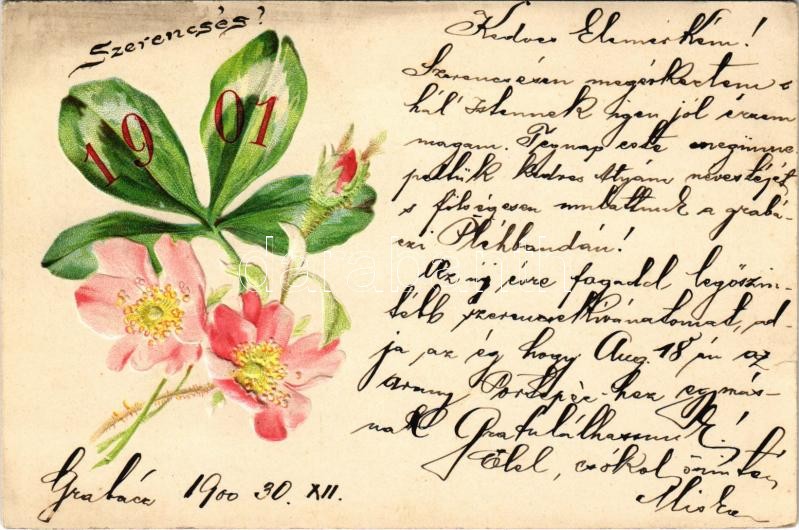 Szerencsés!
19 01
Kedves Elemérkém!
Szerencsésen megérkeztem s
hál' Istennek igen jól érzem
magam. Tegnap este megünne
peltük kedves Atyám nevestéjét
s fölségesen mulattunk a grabá-
czi Pléhbandán!
Az új évre fogadd legőszin-
tébb szerencsekívánatomat, ad-
ja az ég hogy Aug. 18 án az
arany Portepée-hez egymás-
nak Gratulálhassunk!
Ölel, csókol őszintén
Miska
Grabácz 1900 30. XII.
darabanth.com